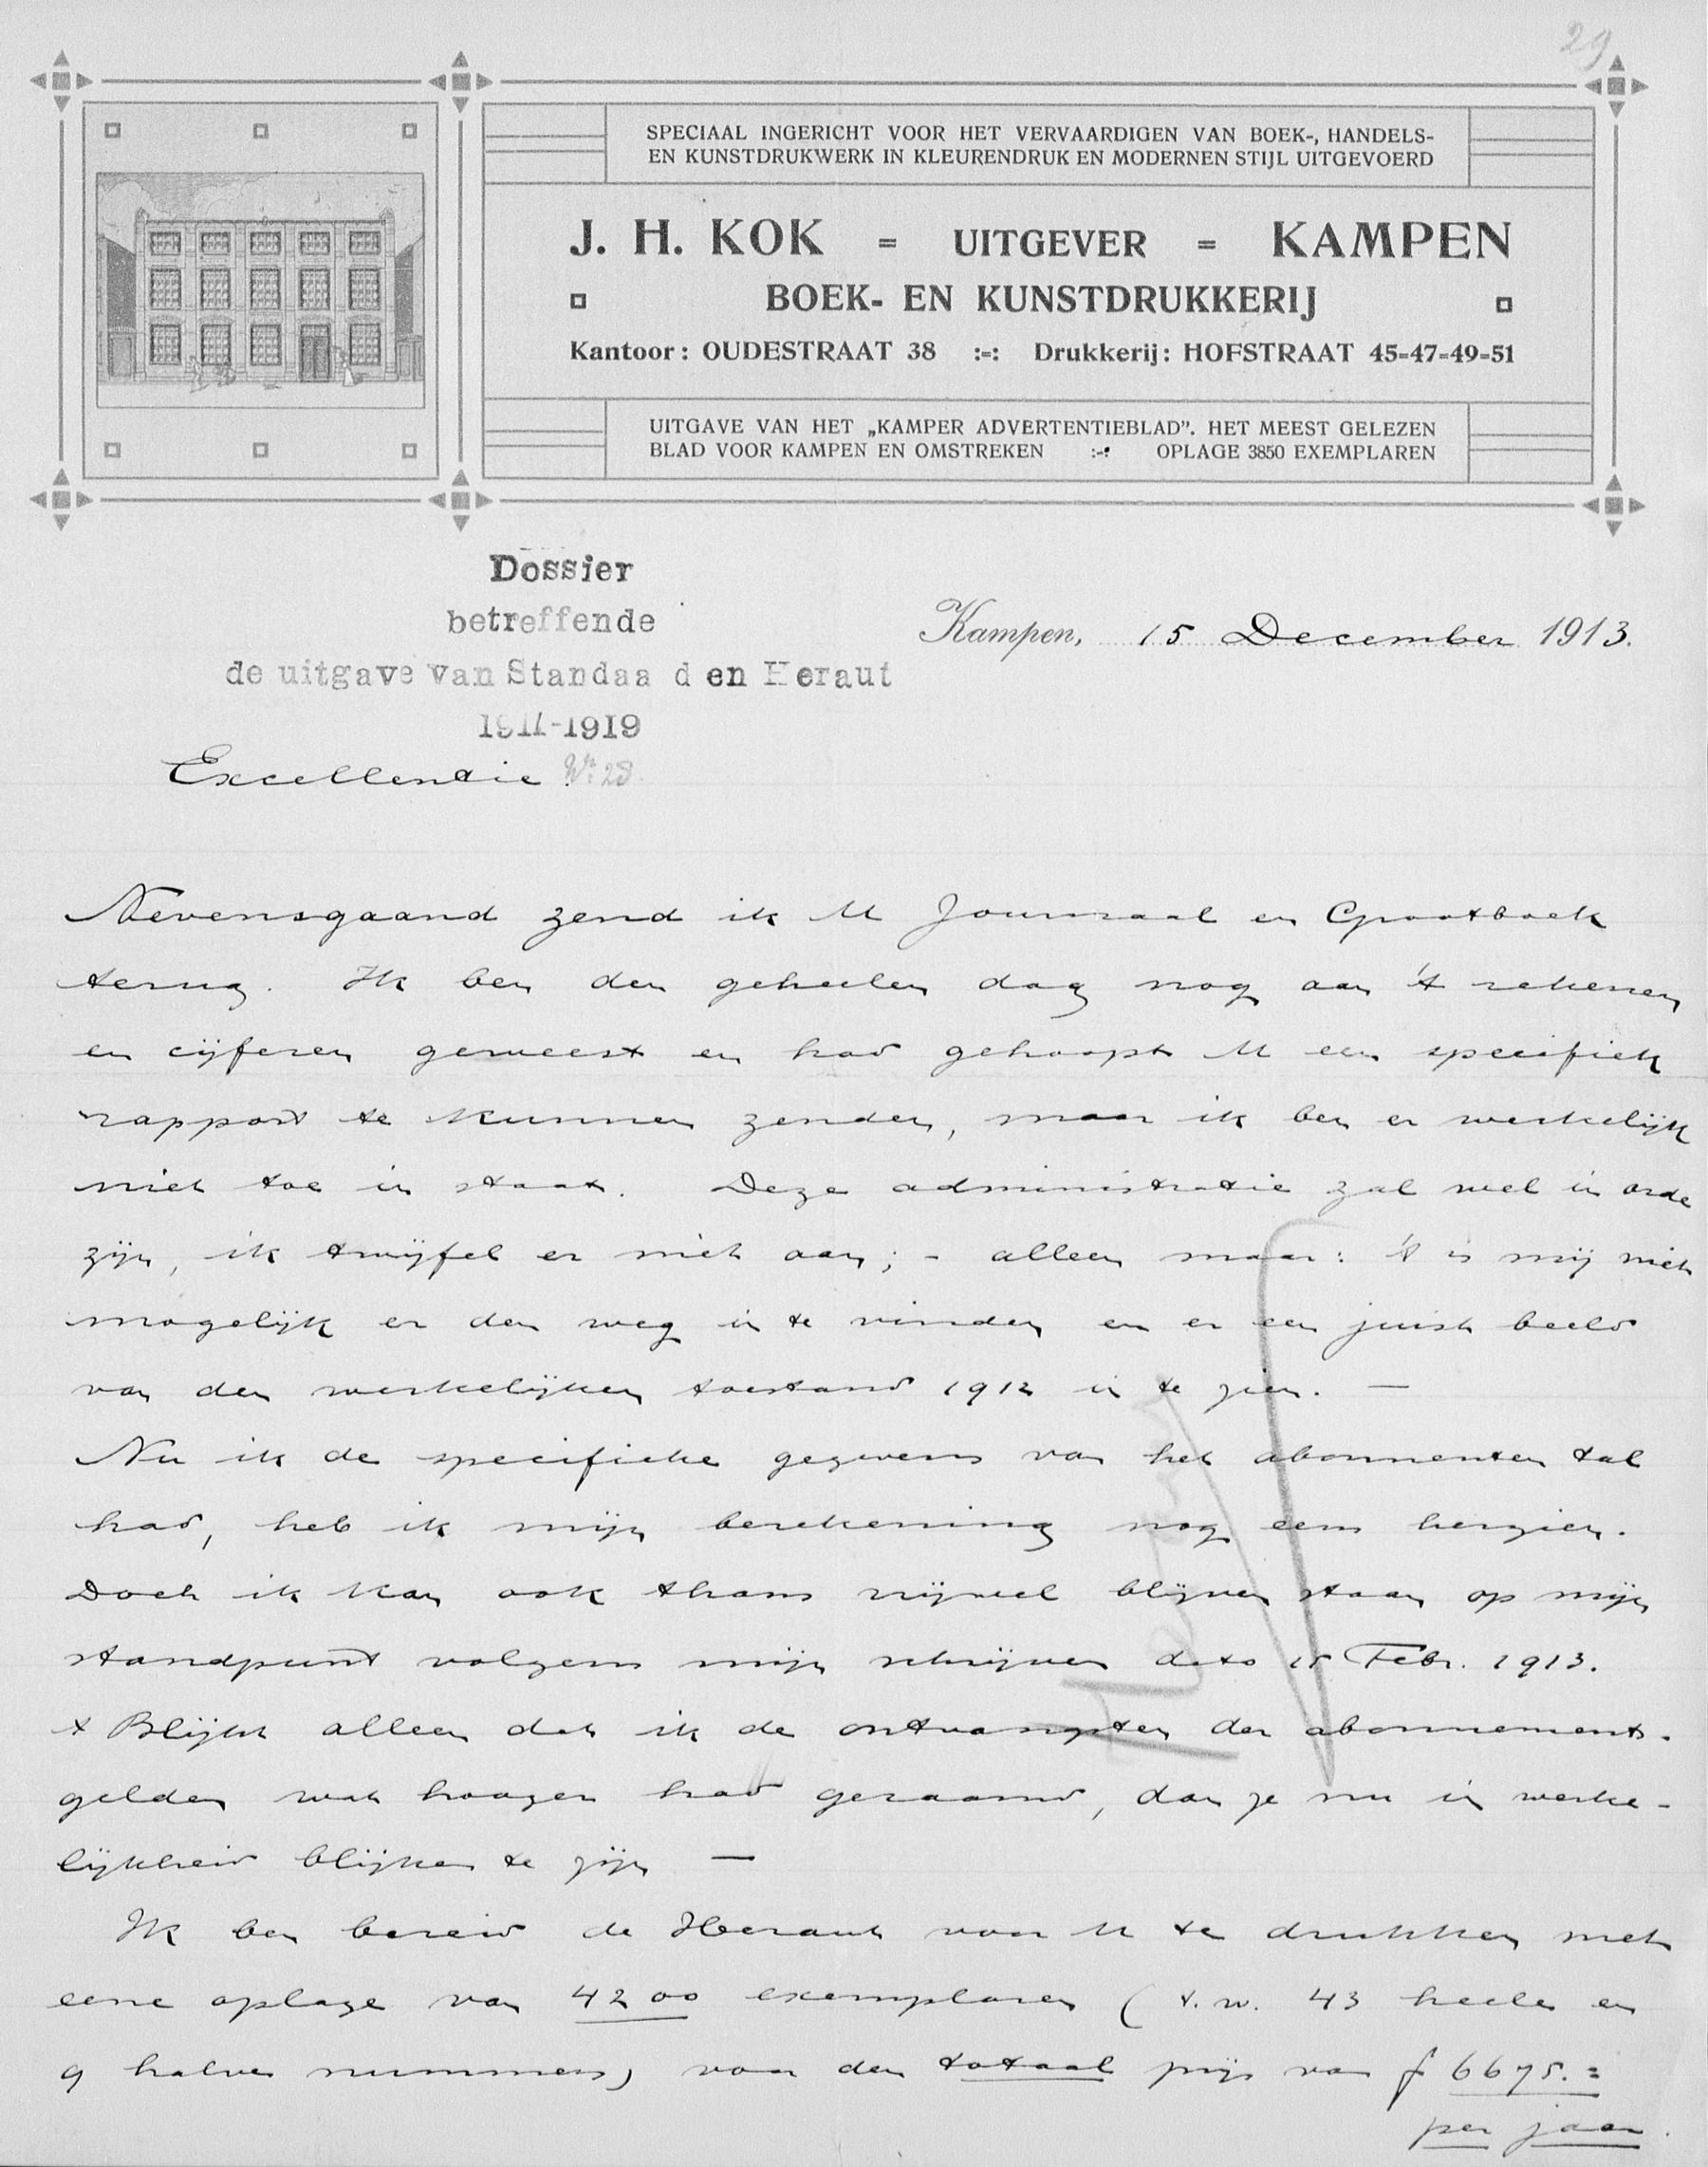 29
SPECIAAL INGERICHT VOOR HET VERVAARDIGEN VAN BOEK-, HANDELS-
EN KUNSTDRUKWERK IN KLEURENDRUK EN MODERNEN STIJL UITGEVOERD
J. H. KOK = UITGEVER = KAMPEN
BOEK- EN KUNSTDRUKKERIJ
Kantoor: OUDESTRAAT 38 :-: Drukkerij: HOFSTRAAT 45-47-49-51
UITGAVE VAN HET „KAMPER ADVERTENTIEBLAD”. HET MEEST GELEZEN
BLAD VOOR KAMPEN EN OMSTREKEN :-: OPLAGE 3850 EXEMPLAREN
Dossier
betreffende
de uitgave van Standaa d en Heraut
1911-1919
Kampen, 15 December 1913.
Excellentie!
Nevensgaand zend ik U Journaal en Grootboek
terug. Ik ben den geheelen dag nog aan 't rekenen
en cijferen geweest en had gehoopt U een specifiek
rapport te kunnen zenden, maar ik ben er werkelijk
niet toe in staat. Deze administratie zal wel in orde
zijn, ik twijfel er niet aan; - alleen maar: 't is mij niet
mogelijk er den weg in te vinden en er een juist beeld
van den werkelijken toestand 1912 in te zien. —
Nu ik de specifieke gegevens van het abonnenten tal
had, heb ik mijn berekening nog eens herzien.
Doch ik kan ook thans vrijwel blijven staan op mijn
standpunt volgens mijn schrijven dato 15 Febr. 1913.
't Blijkt alleen dat ik de ontvangsten der abonnements-
gelden wat hooger had geraamd, dan ze nu in werke-
lijkheid blijken te zijn —
Ik ben bereid de Heraut voor U te drukken met
eene oplage van 4200 exemplaren ( t.w. 43 heele en
9 halve nummers) voor den totaal prijs van f 6675.=
per jaar.
Heraut